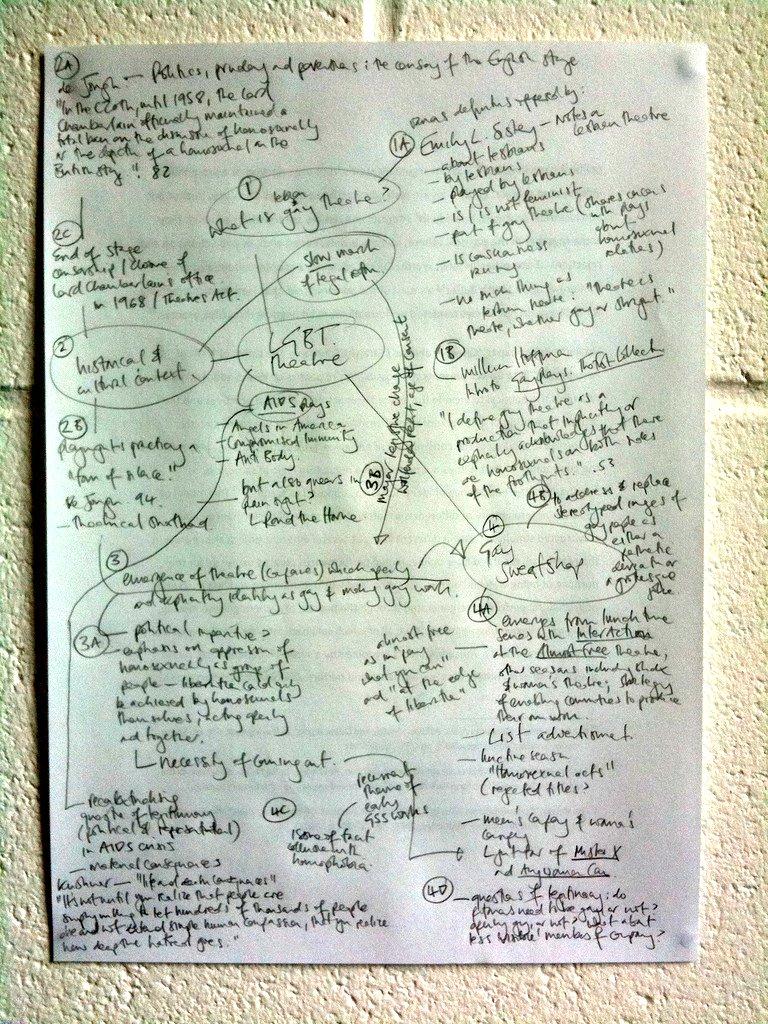 2A
de Jongh - Politics, prudery and perversions: the censoring of the English stage
"In the C20th, until 1958, the Lord
Chamberlain officially maintained a
total ban on the discussion of homosexuality
or the depiction of a homosexual on the
British stage". 82
1
lesbian
What is gay theatre?
various definitions opposed by:
1A
Emily L. Sisley - Notes on lesbian theatre
- about lesbians
- by lesbians
- played by lesbians
- is / is not feminist
- part of gay theatre (shares concerns
with plays
about
homosexual
males)
- is consciousness
raising
- no such thing as
lesbian theatre: "theatre is
theatre, whether gay or straight."
2C
End of stage
censorship / closure of
Lord Chamberlain's office
in 1968 / Theatres Act.
slow march
of legal reform
2
historical &
cultural context
LGBT
theatre
1B
William Hoffman
Intro to Gay Plays: The First Collection
"I define gay theatre as a
production that implicitly or
explicitly acknowledges that there
are homosexuals on both sides
of the footlights." . 53
2B
playwrights practising a
"form of silence."
de Jongh 94.
- theatrical shorthand
AIDS plays
- Angels in America
- Compromised Immunity
- Anti Body
- but also queers in
plain sight?
Rend the Home
3B
major legislative change
age of consent
3
emergence of theatre (companies) which openly
and explicitly identify as gay & making gay work.
4
Gay
Sweatshop
4B
to address & replace
stereotyped images of
gay people as
either a
pathetic
deviation or
a grotesque
joke
3A
- political imperative
- emphasis on oppression of
homosexuality as group of
people - liberation could only
be achieved by homosexuals
themselves, acting openly
and together.
necessity of coming out.
almost free
as in "pay
what you can"
and "at the edge
of liberation"
4A
- emerges from lunch time
series with Interaction
at the Almost Free theatre,
other seasons including black
& women's theatre; strategy
of enabling communities to produce
their own work.
- LIST advertisement.
- lunchtime season
"Homosexual acts"
(rejected titles?
- men's company & women's
company
- Mister X
and Any Woman Can
- recapitulating
question of legitimacy
(political & representational)
in AIDS crisis
- material consequences
4C
recurrent
theme of
early
GSS works
issue of tacit
collusion with
homophobia.
Kushner - "life and death consequences"
"It's not until you realize that people are
simply willing to let hundreds of thousands of people
die and not extend simple human compassion, that you realize
how deep the hatred goes."
4D
- questions of legitimacy: do
performers need to be gay or not?
openly gay, or not? what about
less 'visible' members of company?